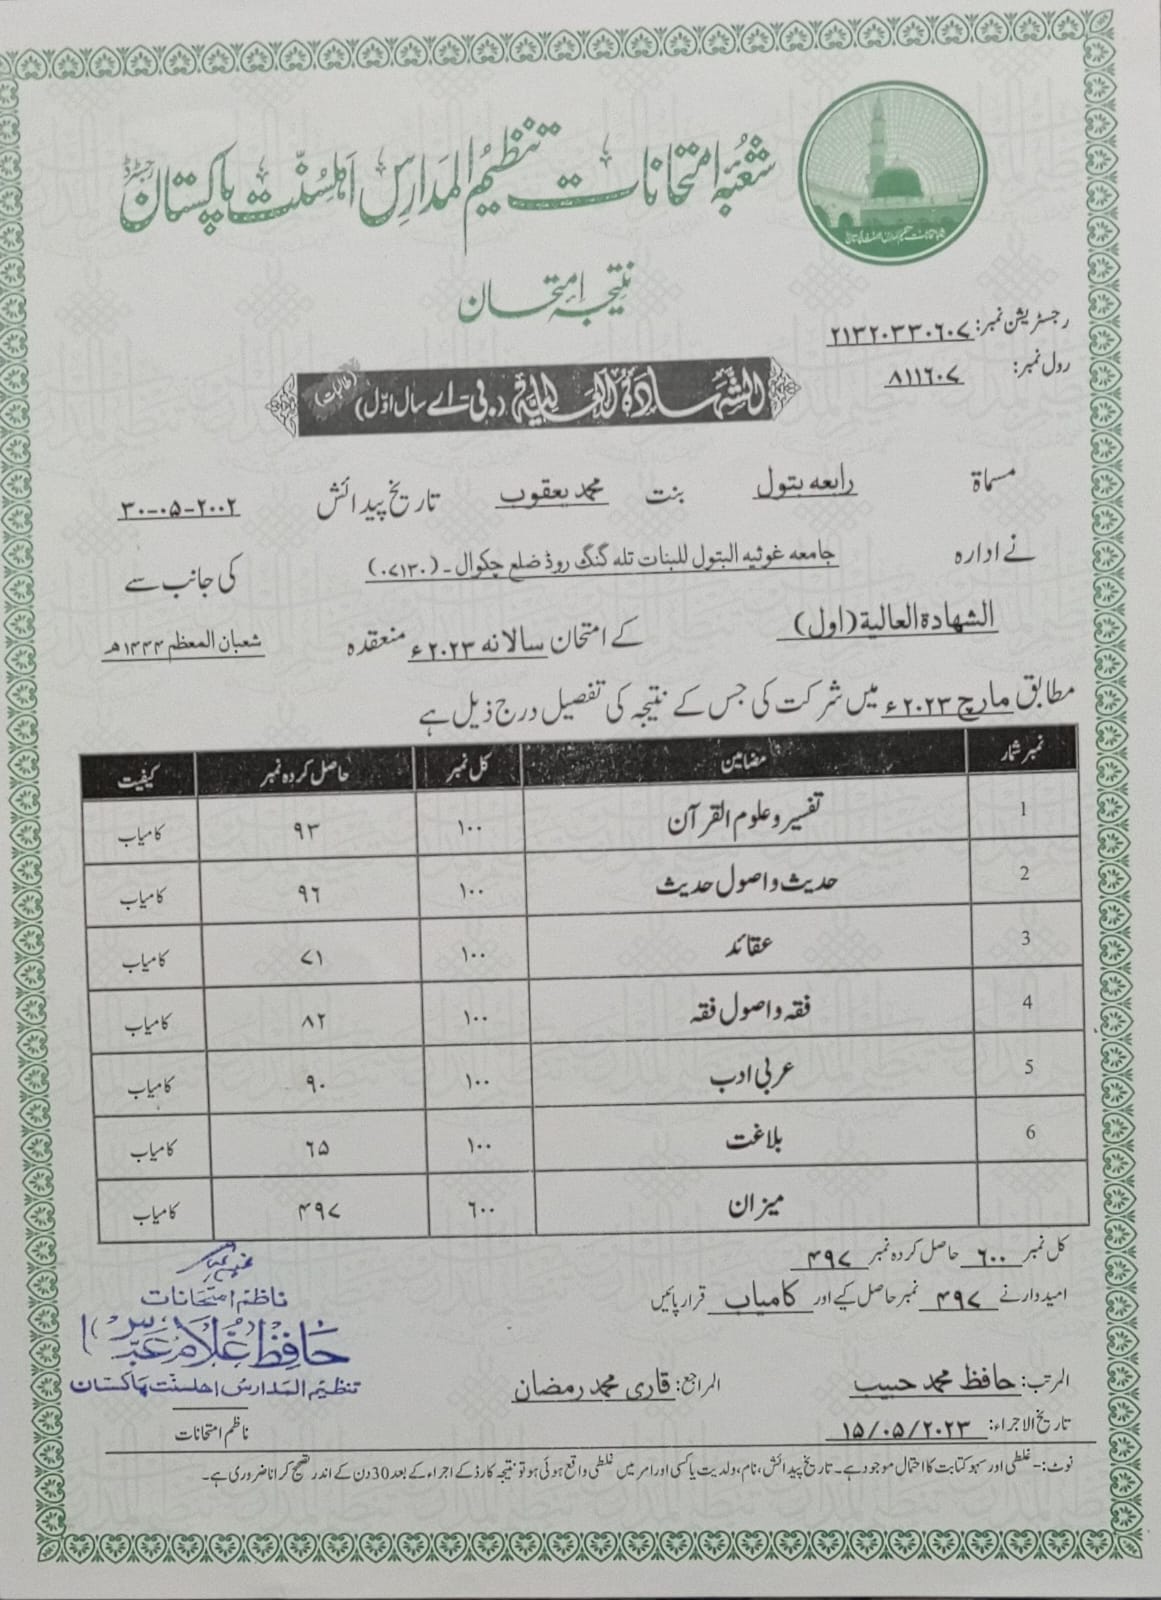 شعبۂ امتحانات تنظیم المدارس اہلسنّت پاکستان رجسٹرڈ
نتیجہ امتحان
رجسٹریشن نمبر: ۲۱۳۲۰۳۳۰۶۰۷
رول نمبر: ۸۱۱۶۰۷
الشہادۃ العالیۃ (بی-اے سال اوّل) (طالبات)
مسماۃ رابعہ بتول بنت محمد یعقوب تاریخ پیدائش ۳۰-۰۵-۲۰۰۲
نے ادارہ جامعہ غوثیہ البتول للبنات تلہ گنگ روڈ ضلع چکوال۔ (۰۷۱۳۰) کی جانب سے
الشھادۃ العالیۃ (اول) کے امتحان سالانہ ۲۰۲۳ء منعقدہ شعبان المعظم ۱۴۴۴ھ
مطابق مارچ ۲۰۲۳ء میں شرکت کی جس کے نتیجہ کی تفصیل درج ذیل ہے
نمبر شمار مضامین کل نمبر حاصل کردہ نمبر کیفیت
1 تفسیر و علوم القرآن ۱۰۰ ۹۳ کامیاب
2 حدیث و اصول حدیث ۱۰۰ ۹۶ کامیاب
3 عقائد ۱۰۰ ۷۱ کامیاب
4 فقہ و اصول فقہ ۱۰۰ ۸۲ کامیاب
5 عربی ادب ۱۰۰ ۹۰ کامیاب
6 بلاغت ۱۰۰ ۶۵ کامیاب
میزان ۶۰۰ ۴۹۷ کامیاب
کل نمبر ۶۰۰ حاصل کردہ نمبر ۴۹۷
امیدوار نے ۴۹۷ نمبر حاصل کیے اور کامیاب قرار پائیں
ناظم امتحانات
حافظ غلام عباس
تنظیم المدارس اہلسنت پاکستان
المرتب: حافظ محمد حبیب المراجع: قاری محمد رمضان
تاریخ الاجراء: ۱۵/۰۵/۲۰۲۳ ناظم امتحانات
نوٹ:- غلطی اور سہو کتابت کا احتمال موجود ہے۔ تاریخ پیدائش، نام، ولدیت یا کسی اور امر میں غلطی واقع ہوئی ہو تو نتیجہ کارڈ کے اجراء کے بعد 30 دن کے اندر تصحیح کرانا ضروری ہے۔